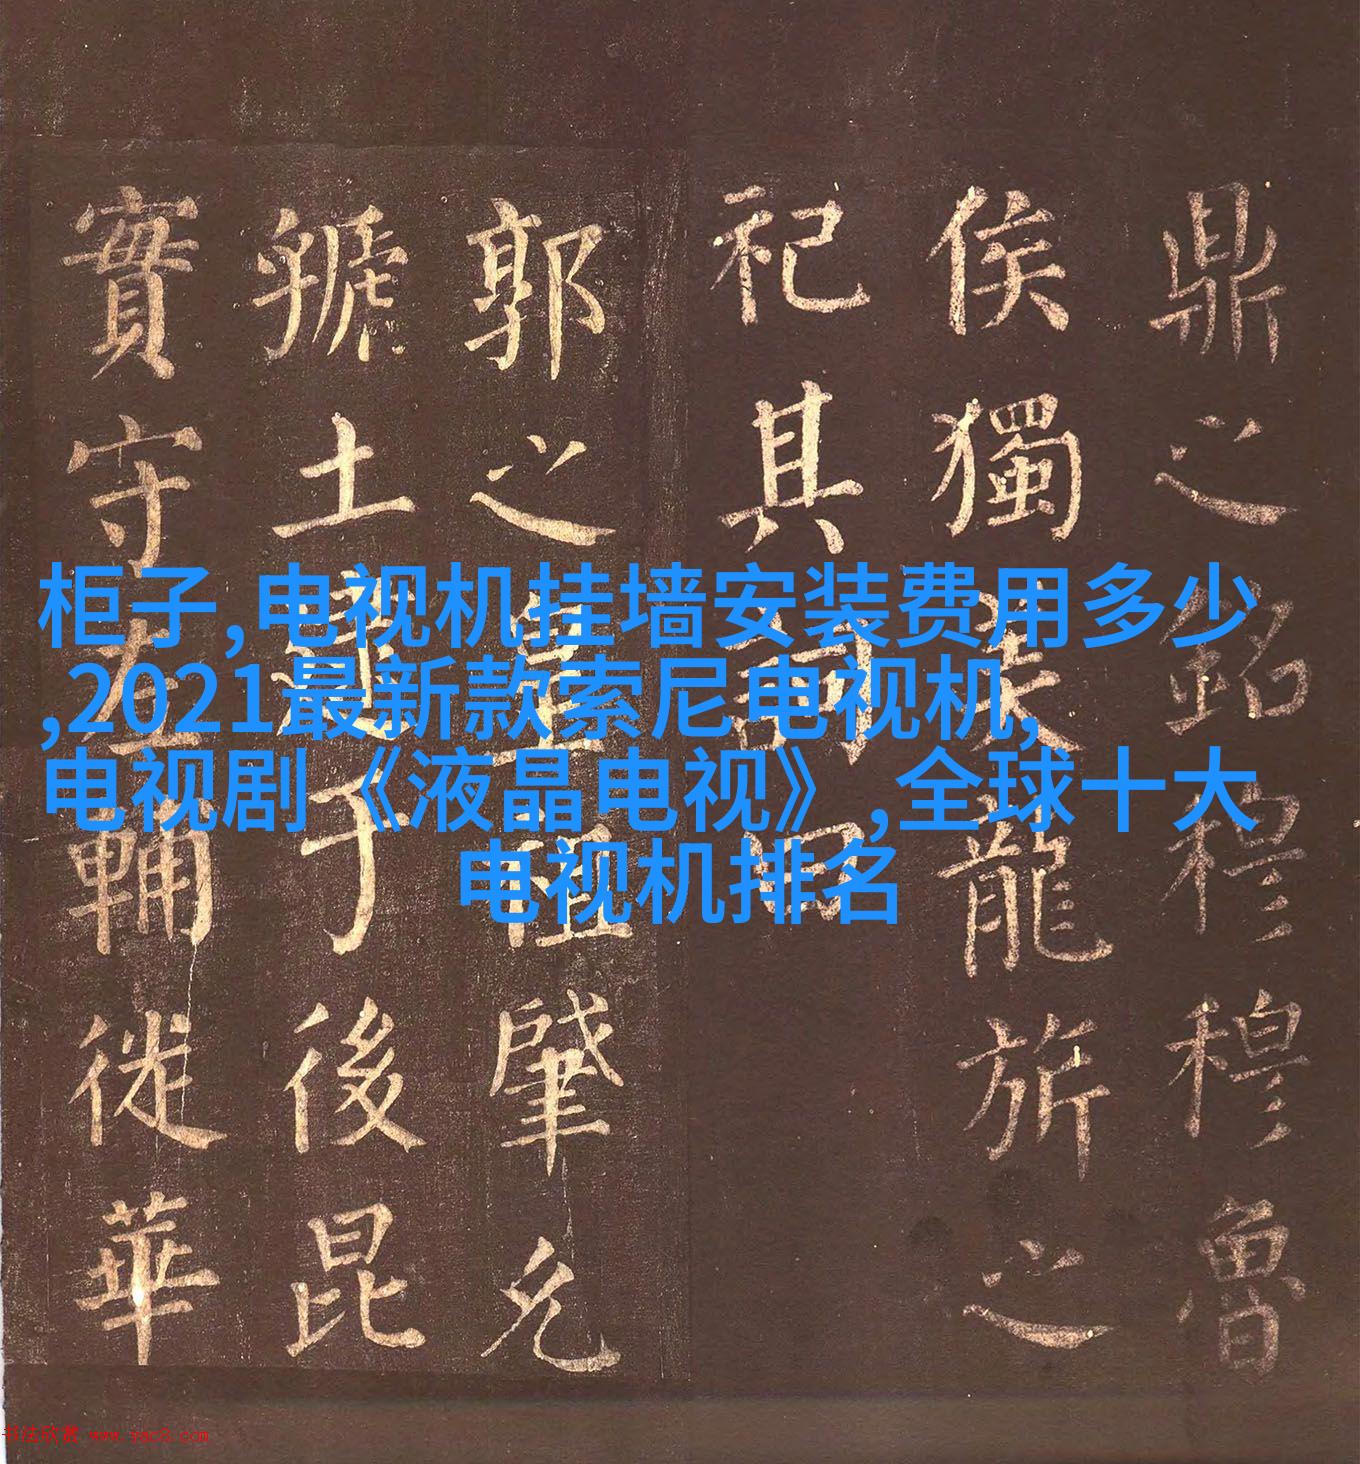 鼎之銘穆穆魯
侯獨美龍旂之
祀其詞曰
郭之皇祖肇允
虢土爰于後昆
實守左輔徙華
柜子,电视机挂墙安装费用多少
,2021最新款索尼电视机,
电视剧《液晶电视》,全球十大
电视机排名
书法欣赏 www.yac8.com